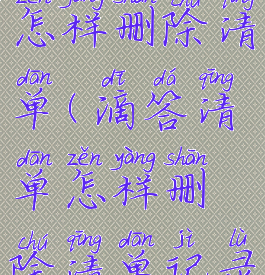 zěn yàng shān chú qīng
怎样删除清
dān dī dá qīng
单(滴答清
dān zěn yàng shān
单怎样删
chú qīng dān jì lù
除清单记录